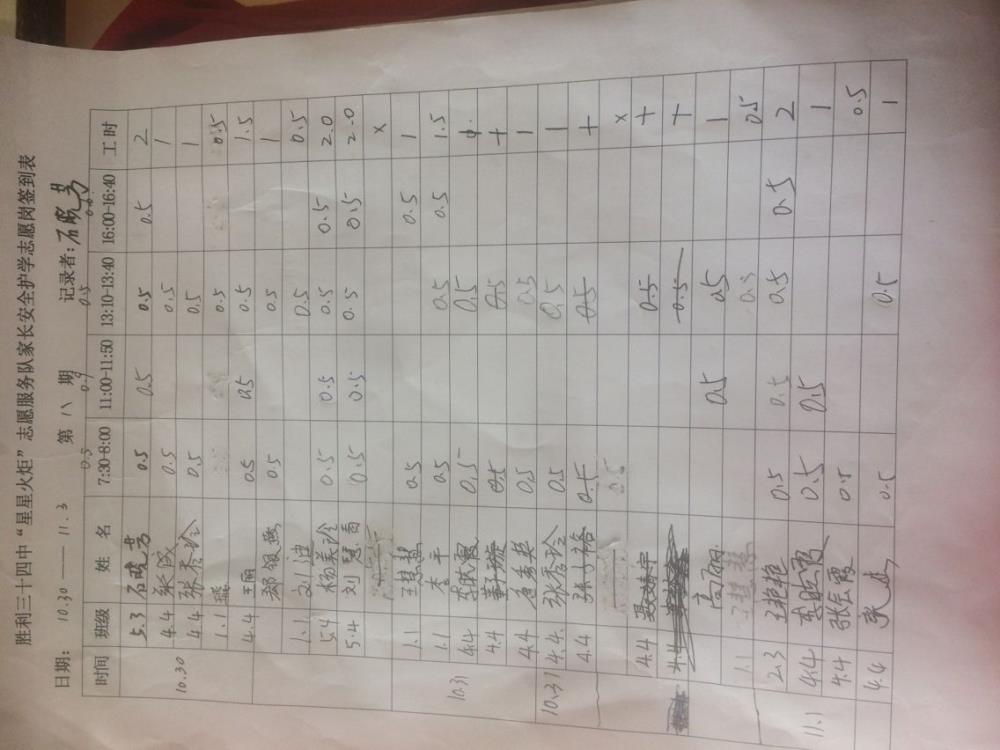 胜利三十四中“星星火炬”志愿服务队家长安全护学志愿岗签到表
日期: 10.30 — 11.3 第 八 期 记录者: 石晓芳
0.5 0.9 0.5
时间 班级 姓 名 7:30-8:00 11:00-11:50 13:10-13:40 16:00-16:40 工时
5.3 石晓芳 0.5 0.5 0.5 0.5 2
4.4 张成 0.5 0.5 1
10.30 4.4 张秀玲 0.5 0.5 1
1.1 0.5 0.5
4.4 王丽 0.5 0.5 0.5 1.5
郑银燕 0.5 0.5 1
1.1 刘波 0.5 0.5
5.4 杨美玲 0.5 0.5 0.5 0.5 2.0
5.4 刘慧香 0.5 0.5 0.5 0.5 2.0
x
1.1 王慧慧 0.5 0.5 1
1.1 李平 0.5 0.5 0.5 1.5
10.31 4.4 李欣霞 0.5 0.5 1
4.4 0.5 0.5 1
4.4 0.5 0.5 1
10.31 4.4 张秀玲 0.5 0.5 1
4.4 张 0.5 0.5 1
0.5 x
4.4 聂 0.5 1
4.4 0.5 1
高丽 0.5 0.5 1
1.1 王慧慧 0.5 0.5
2.3 王艳艳 0.5 0.5 0.5 0.5 2
11.1 4.4 李 0.5 0.5 1
4.4 张会霞 0.5 0.5
4.4 张 0.5 0.5 1